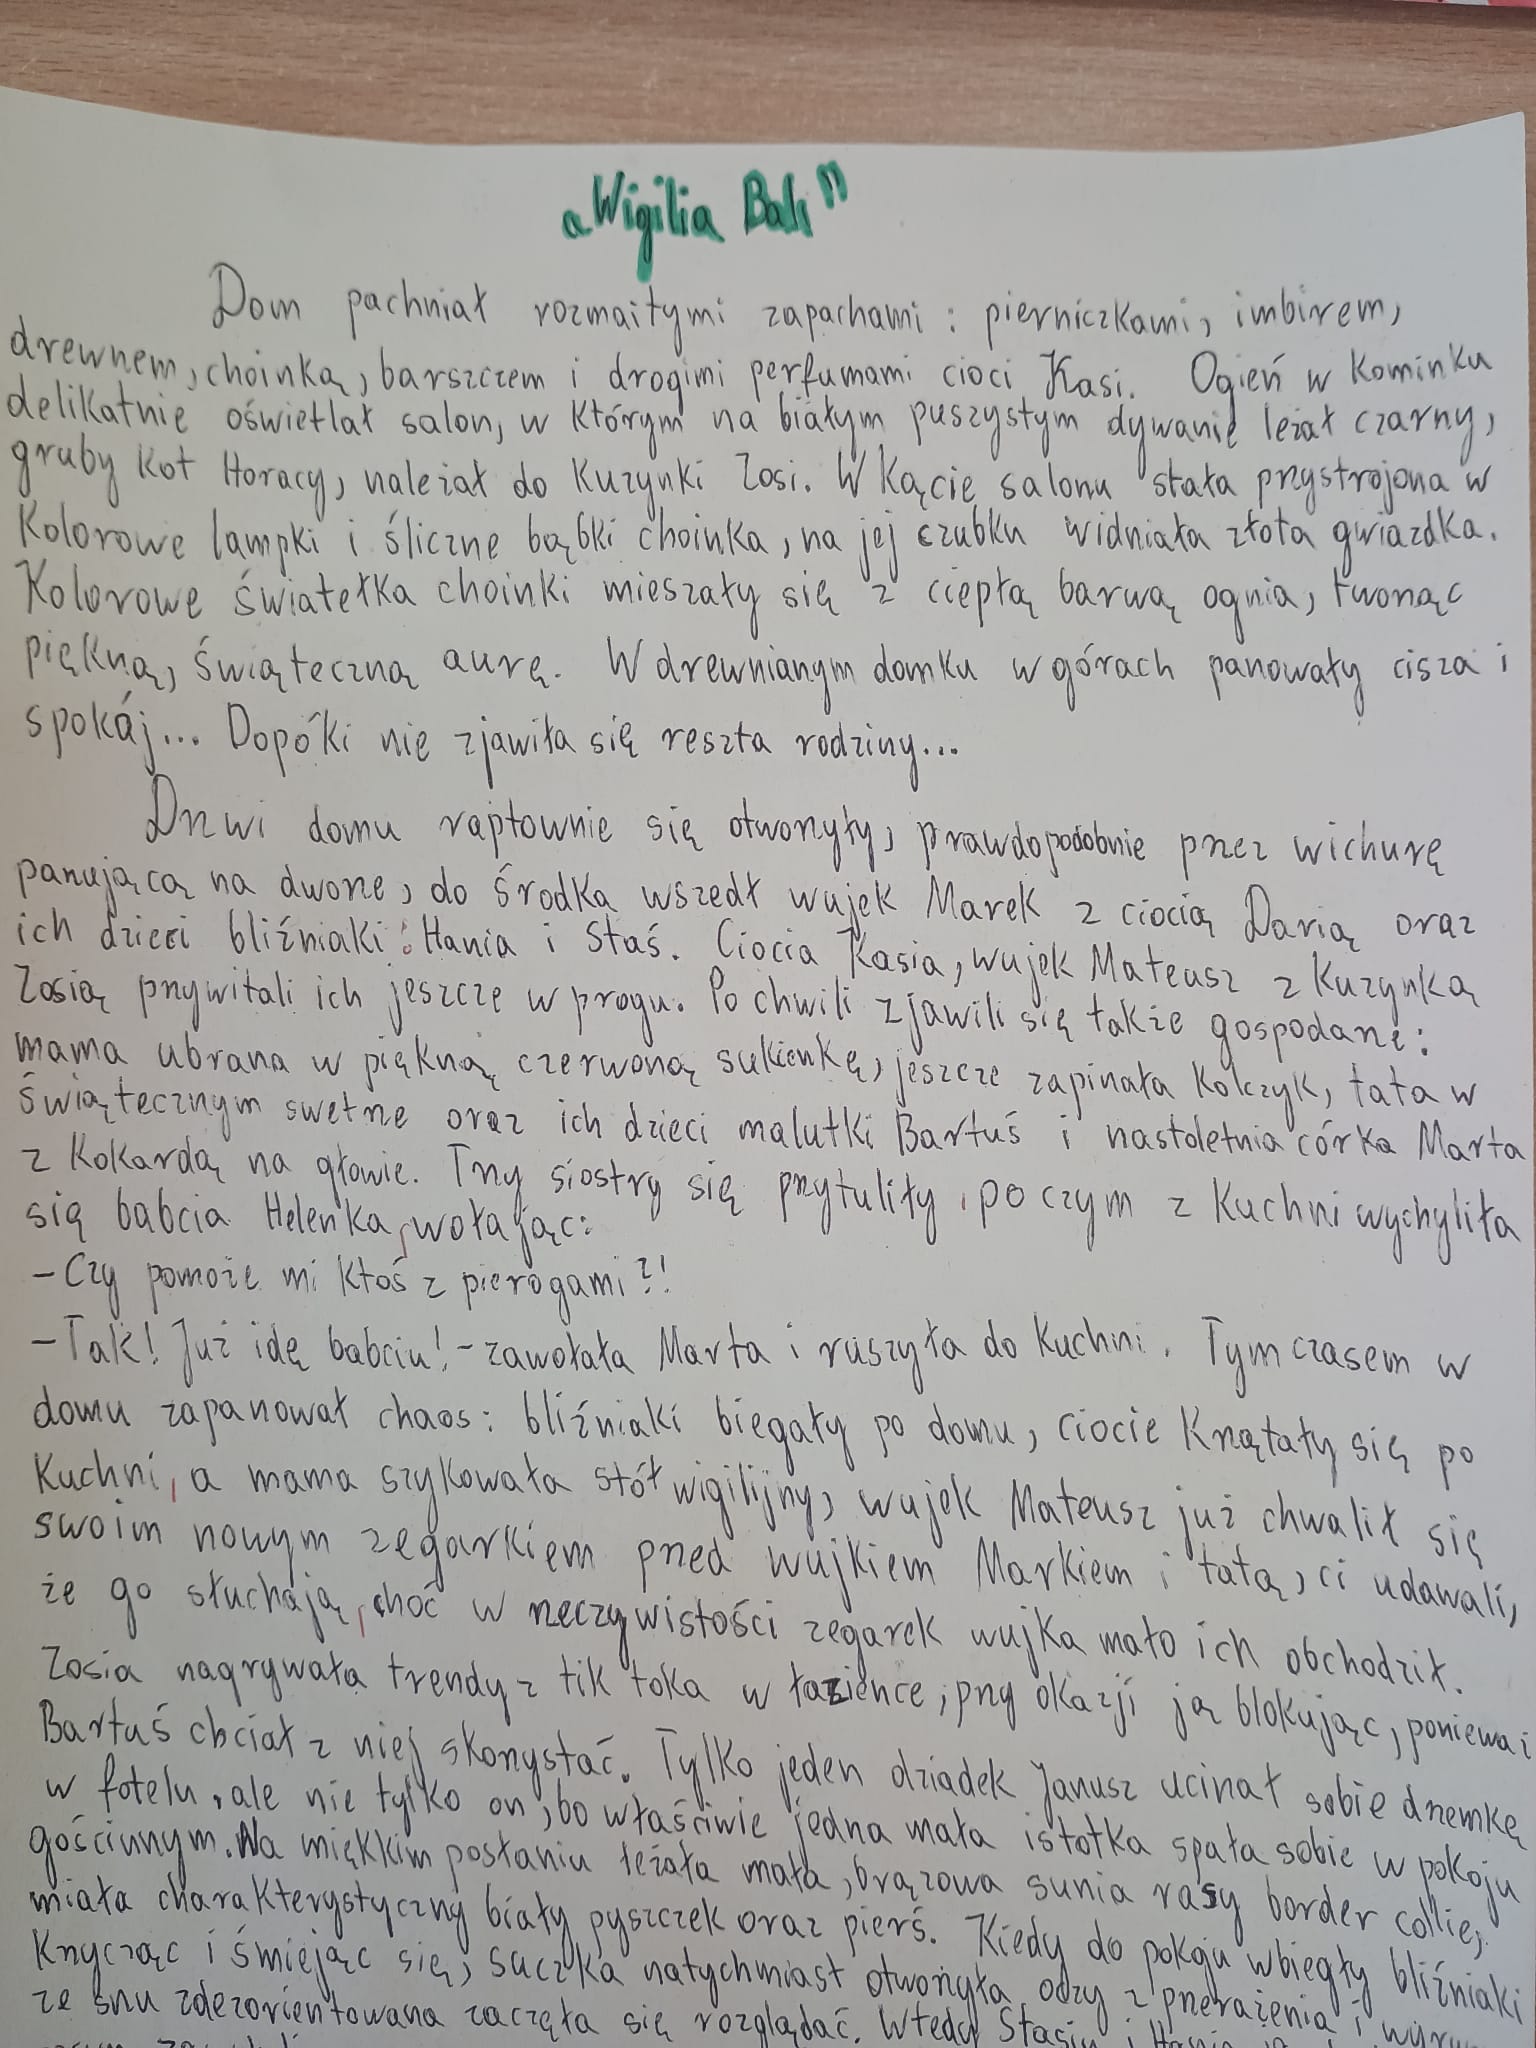 „Wigilia Bali"
Dom pachniał rozmaitymi zapachami: pierniczkami, imbirem,
drewnem, choinką, barszczem i drogimi perfumami cioci Kasi. Ogień w kominku
delikatnie oświetlał salon, w którym na białym puszystym dywanie leżał czarny,
gruby kot Horacy, należał do kuzynki Zosi. W kącie salonu stała przystrojona w
kolorowe lampki i śliczne bąbki choinka, na jej czubku widniała złota gwiazdka.
Kolorowe światełka choinki mieszały się z ciepłą barwą ognia, tworząc
piękną, świąteczną aurę. W drewnianym domku w górach panowały cisza i
spokój... Dopóki nie zjawiła się reszta rodziny...
Drzwi domu raptownie się otworzyły, prawdopodobnie przez wichurę
panującą na dworze, do środka wszedł wujek Marek z ciocią Darią oraz
ich dzieci bliźniaki: Hania i Staś. Ciocia Kasia, wujek Mateusz z kuzynką
Zosią przywitali ich jeszcze w progu. Po chwili zjawili się także gospodarze:
mama ubrana w piękną czerwoną sukienkę, jeszcze zapinała kolczyk, tata w
świątecznym swetrze oraz ich dzieci malutki Bartuś i nastoletnia córka Marta
z kokardą na głowie. Trzy siostry się przytuliły, po czym z kuchni wychyliła
się babcia Helenka, wołając:
-Czy pomoże mi ktoś z pierogami?!
-Tak! Już idę babciu!-zawołała Marta i ruszyła do kuchni. Tymczasem w
domu zapanował chaos: bliźniaki biegały po domu, ciocie krzątały się po
kuchni, a mama szykowała stół wigilijny, wujek Mateusz już chwalił się
swoim nowym zegarkiem przed wujkiem Markiem i tatą, ci udawali,
że go słuchają, choć w rzeczywistości zegarek wujka mało ich obchodził.
Zosia nagrywała trendy z tik toka w łazience, przy okazji ją blokując, ponieważ
Bartuś chciał z niej skorzystać. Tylko jeden dziadek Janusz ucinał sobie drzemkę
w fotelu, ale nie tylko on, bo właściwie jedna mała istotka spała sobie w pokoju
gościnnym. Na miękkim posłaniu leżała mała, brązowa sunia rasy border collie,
miała charakterystyczny biały pyszczek oraz pierś. Kiedy do pokoju wbiegły bliźniaki
krzycząc i śmiejąc się, suczka natychmiast otworzyła oczy z przerażenia i
ze snu zdezorientowana zaczęła się rozglądać. Wtedy Stasiu i Hania